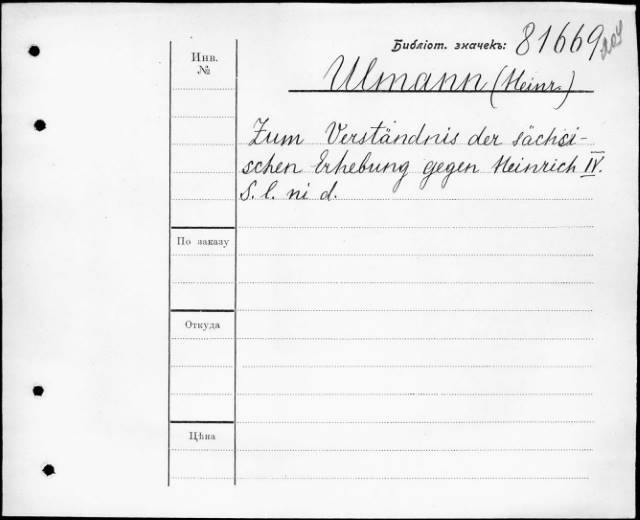 Библіот. значекъ: 81669
Инв.
№
Ulmann (Heinr.)
Zum Verständnis der sächsi-
schen Erhebung gegen Heinrich IV.
S. l. ni d.
По заказу
Откуда
Цѣна